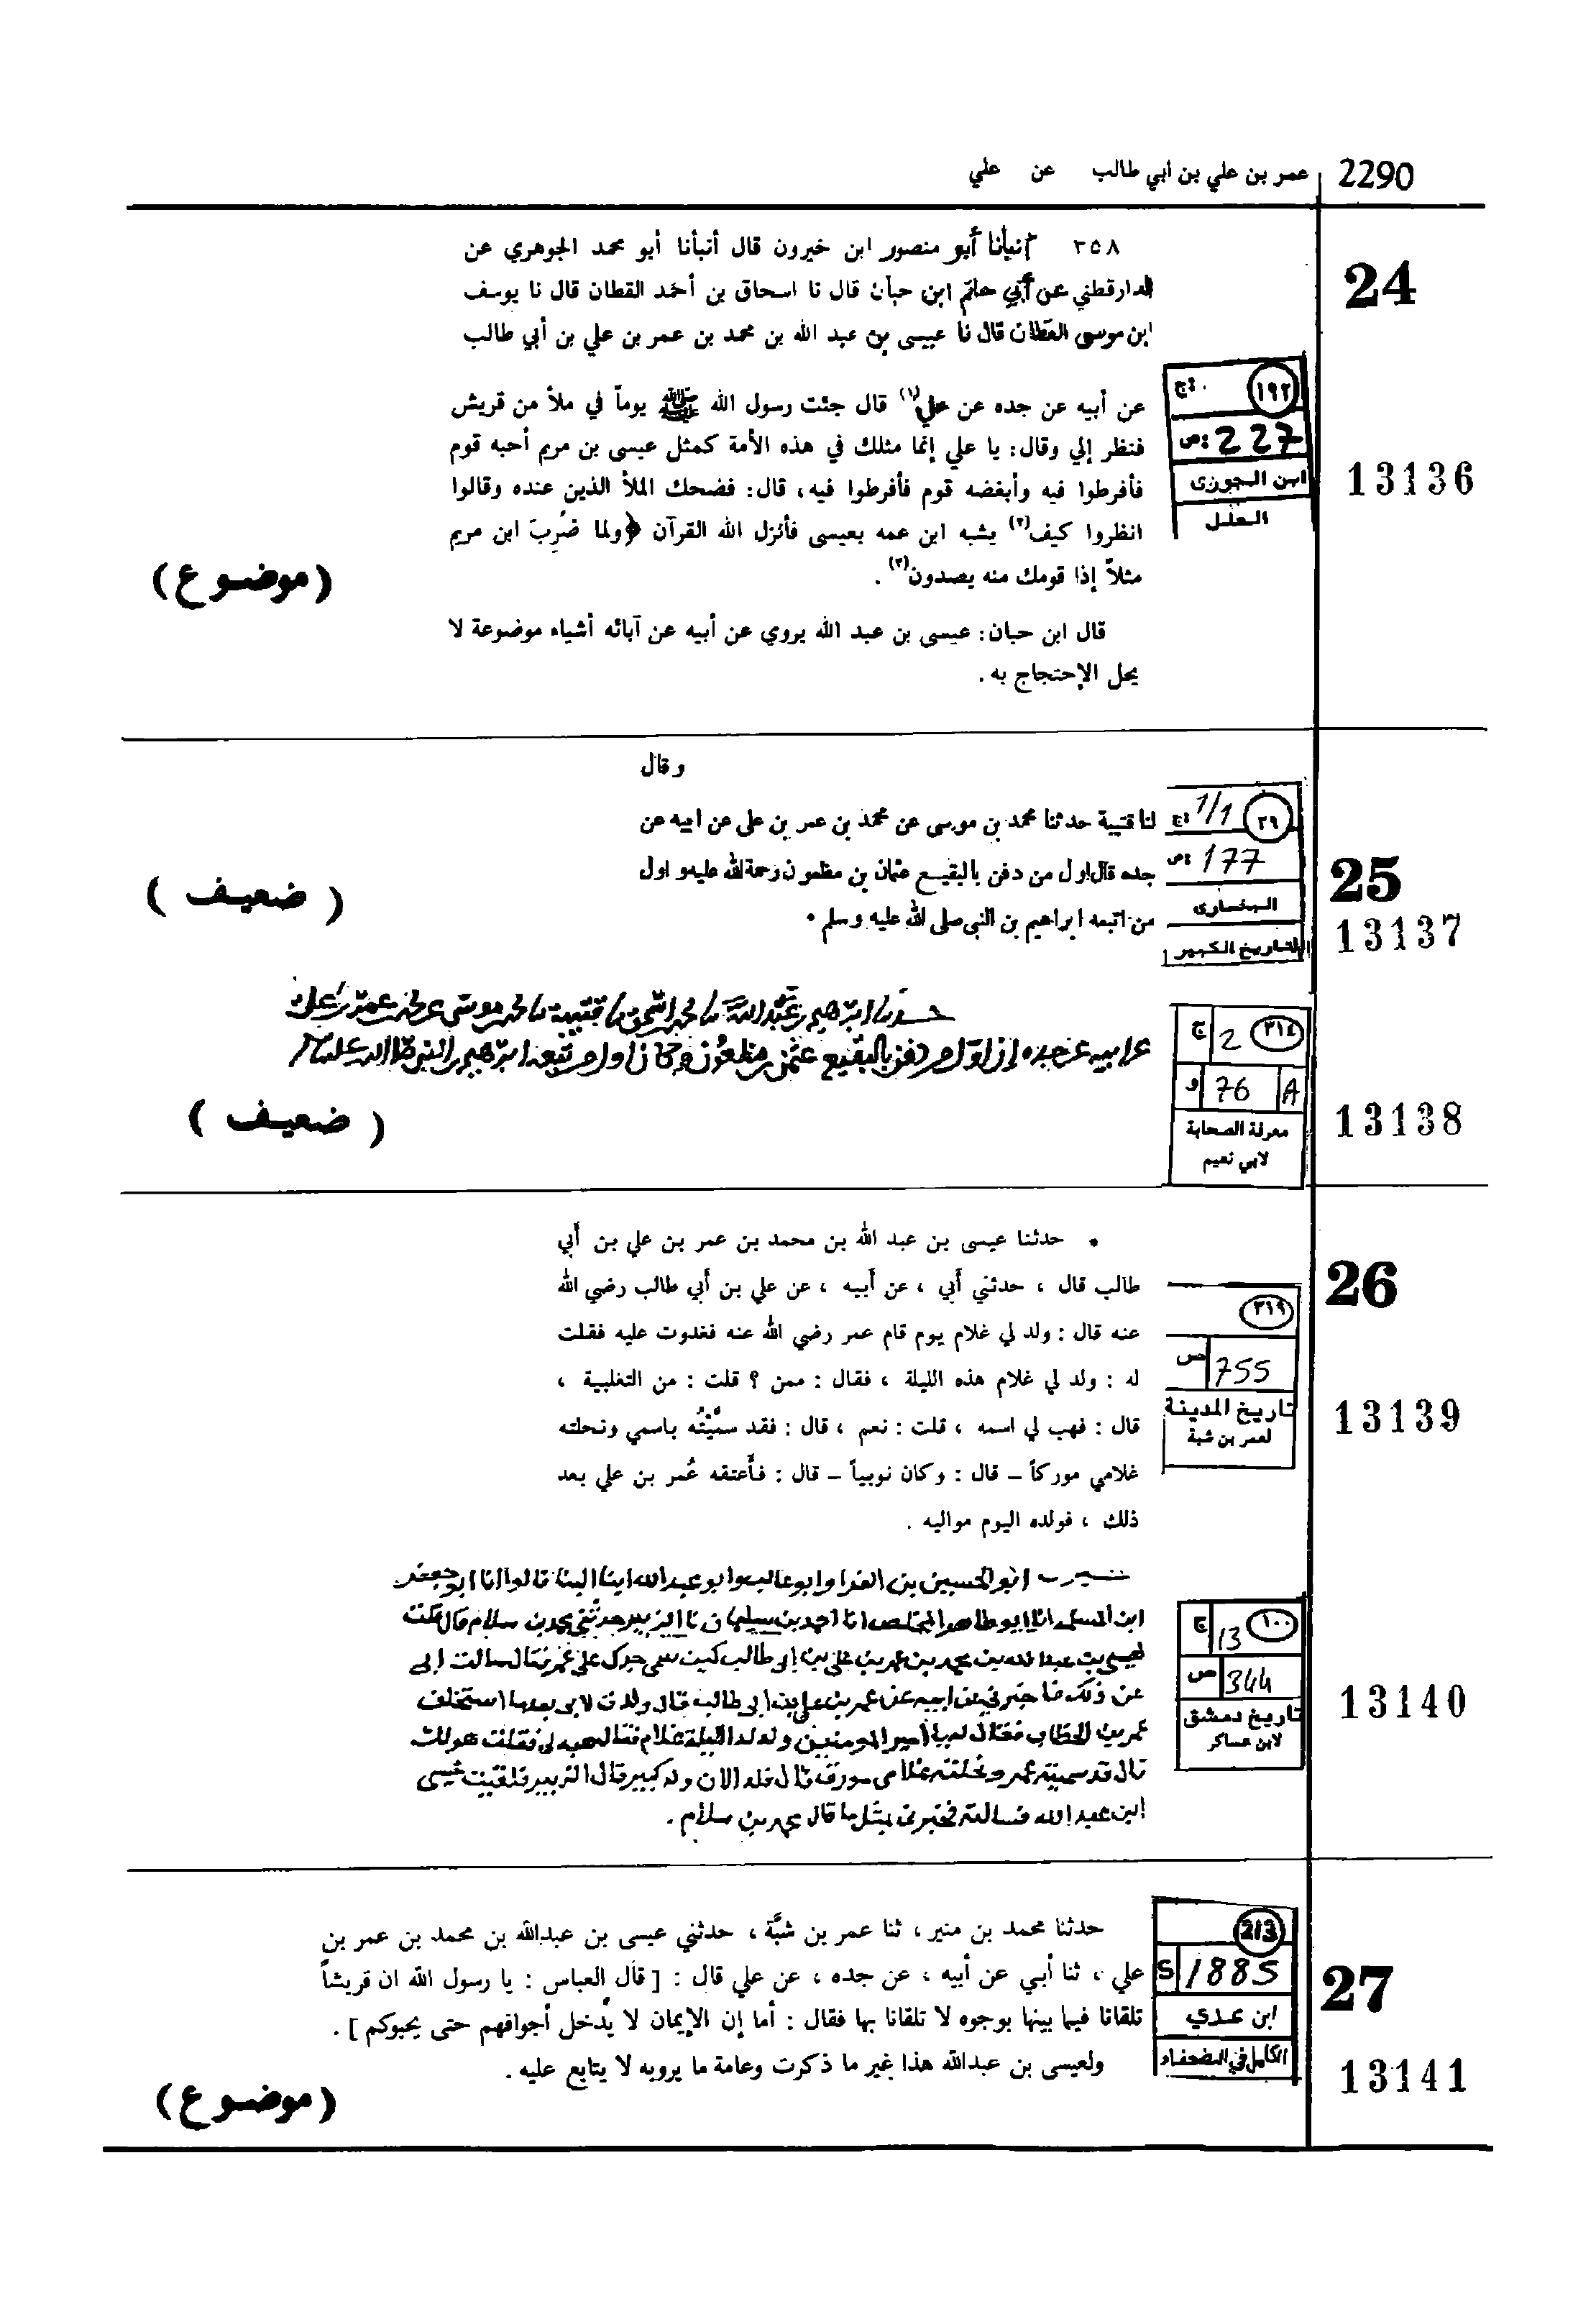 2290 عمر بن علي بن أبي طالب عن علي
24
٣٥٨ أنبأنا أبو منصور ابن خيرون قال أنبأنا أبو محمد الجوهري عن
الدارقطني عن أبي حاتم ابن حبان قال نا اسحاق بن أحمد القطان قال نا يوسف
ابن موسى القطان قال نا عيسى بن عبد الله بن محمد بن عمر بن علي بن أبي طالب
عن أبيه عن جده عن علي(١) قال جئت رسول الله ﷺ يوماً في ملأ من قريش
فنظر إلي وقال: يا علي إنما مثلك في هذه الأمة كمثل عيسى بن مريم أحبه قوم
فأفرطوا فيه وأبغضه قوم فأفرطوا فيه، قال: فضحك الملأ الذين عنده وقالوا
انظروا كيف(٢) يشبه ابن عمه بعيسى فأنزل الله القرآن ﴿ولما ضُرِبَ ابن مريم
مثلاً إذا قومك منه يصدون(٣).
قال ابن حبان: عيسى بن عبد الله يروي عن أبيه عن آبائه أشياء موضوعة لا
يحل الإحتجاج به.
١٩٢ ج:
ص: 227
ابن الجوزى
العلل
13136
(موضوع)
25
وقال
لنا قتيبة حدثنا محمد بن موسى عن محمد بن عمر بن على عن ابيه عن
جده قال اول من دفن بالبقيع عثمان بن مظعون رحمة الله عليه و اول
من اتبعه ابراهيم بن النبي صلى الله عليه وسلم •
٢٩ ج: 1/1
ص: 177
البخارى
التاريخ الكبير
13137
(ضعيف)
حدثنا ابرهيم بن عبد الله نا محمد بن اسحق نا قتيبة نا محمد بن موسى عن محمد بن عمر بن على
عن ابيه عن جده ان اول من دفن بالبقيع عثمن بن مظعون وكان اول من تبعه ابرهيم بن النبي صلى الله عليه وسلم
٣١٤ ج 2
A 76 و
معرفة الصحابة
لابي نعيم
13138
(ضعيف)
26
• حدثنا عيسى بن عبد الله بن محمد بن عمر بن علي بن أبي
طالب قال ، حدثني أبي ، عن أبيه ، عن علي بن أبي طالب رضي الله
عنه قال : ولد لي غلام يوم قام عمر رضي الله عنه فغدوت عليه فقلت
له : ولد لي غلام هذه الليلة ، فقال : ممن ؟ قلت : من التغلبية ،
قال : فهب لي اسمه ، قلت : نعم ، قال : فقد سمَّيْتُه باسمي ونحلته
غلامي موركاً – قال : وكان نوبياً – قال : فأعتقه عُمر بن علي بعد
ذلك ، فولده اليوم مواليه .
٣١٩
ص 755
تاريخ المدينة
لعمر بن شبة
13139
ابو الحسين بن الفرا وابو غالب وابو عبد الله ابنا البنا قالوا انا ابو جعفر
ابن المسلمة انا ابو طاهر المخلص انا احمد بن سليمان نا الزبير حدثني محمد بن سلام قال قلت
لعيسى بن عبد الله بن محمد بن عمر بن علي بن ابي طالب كيف سمى جدك علي عمر فقال سالت ابي
عن ذلك فاخبرني عن ابيه عن عمر بن علي بن ابي طالب قال ولدت لابي بعدما استخلف
عمر بن الخطاب فقال له يا امير المومنين ولد لي الليلة غلام فقال هبه لي فقلت هو لك
قال قد سميته عمر ونحلته غلامي مورق قال فله الان ولد كبير قال الزبير فلقيت عيسى
ابن عبد الله فسالته فخبرني بمثل ما قال محمد بن سلام .
١٠٠ ج 13
ص 344
تاريخ دمشق
لابن عساكر
13140
27
حدثنا محمد بن منير ، ثنا عمر بن شبَّة ، حدثني عيسى بن عبدالله بن محمد بن عمر بن
علي ، ثنا أبي عن أبيه ، عن جده ، عن علي قال : [ قال العباس : يا رسول الله ان قريشاً
تلقانا فيما بينها بوجوه لا تلقانا بها فقال : أما إن الإيمان لا يُدخل أجوافهم حتى يحبوكم ] .
ولعيسى بن عبدالله هذا غير ما ذكرت وعامة ما يرويه لا يتابع عليه .
213
S 1885
ابن عدي
الكامل في الضعفاء
13141
(موضوع)